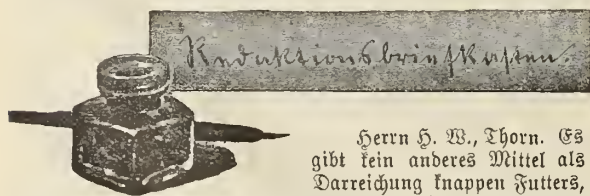 Redaktionsbriefkasten.
Herrn H. W., Thorn. Es
gibt kein anderes Mittel als
Darreichung knappen Futters,